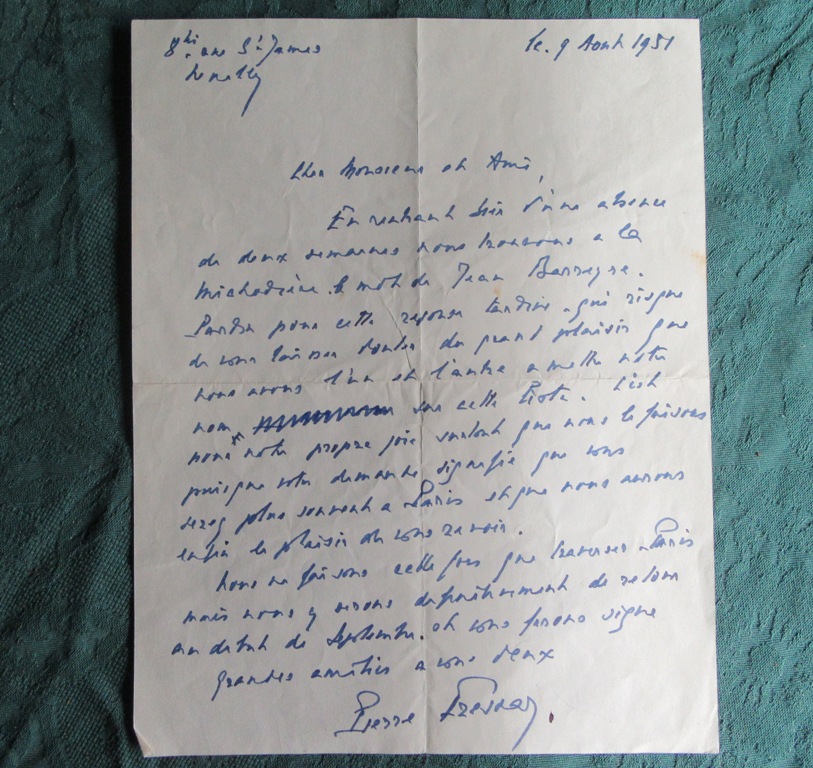 8bis rue St James
Neuilly
le. 9 Aout 1951
Cher Monsieur et Ami,
En rentrant hier d'une absence
de deux semaines nous trouvons a la
Michodière le mot de Jean Barreyre.
Pardon pour cette reponse tardive qui risque
de vous laisser douter du grand plaisir que
nous avons l'un et l'autre a mettre notre
nom sur cette liste. C'est
pour notre propre joie surtout que nous le faisons
puisque votre demande signifie que vous
serez plus souvent a Paris et que nous aurons
enfin le plaisir de vous revoir.
Nous ne faisons cette fois que traverser Paris
mais nous y serons definitivement de retour
au debut de Septembre. et vous ferons signe
Grandes amitiés a vous deux
Pierre Fresnay.